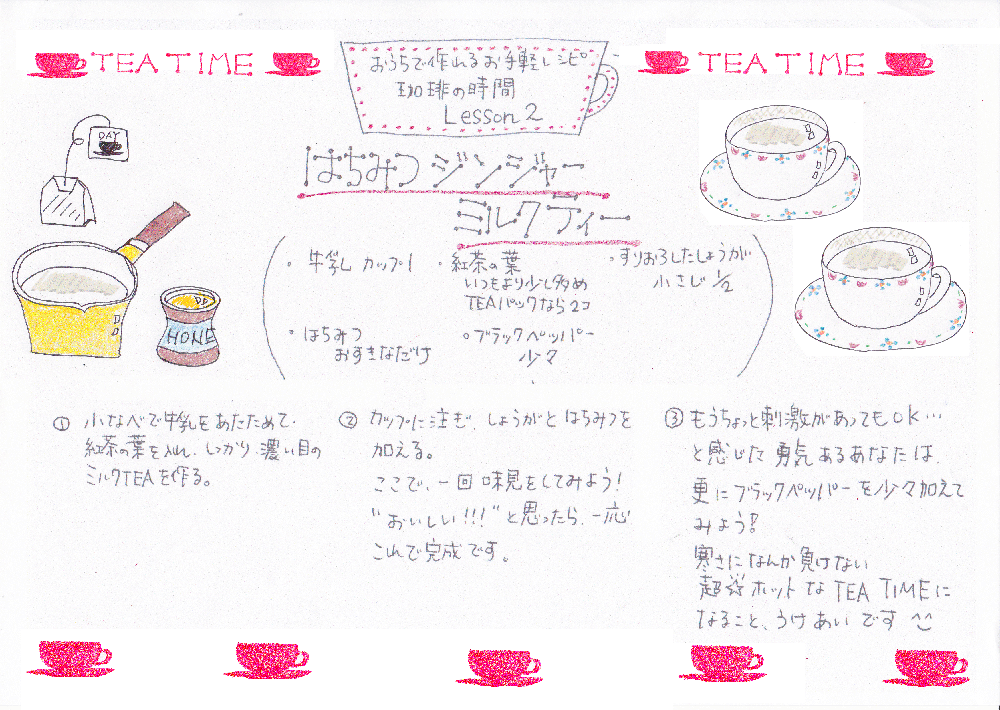 TEA TIME
おうちで作れるお手軽レシピ
珈琲の時間
Lesson 2
TEA TIME
DAY
はちみつジンジャー
ミルクティー
・牛乳 カップ1
・紅茶の葉
いつもより少し多め
TEAパックなら2コ
・すりおろしたしょうが
小さじ 1/2
・はちみつ
おすきなだけ
・ブラックペッパー
少々
HONE
① 小なべで牛乳をあたためて、
紅茶の葉を入れ、しっかり濃い目の
ミルクTEAを作る。
② カップに注ぎ、しょうがとはちみつを
加える。
ここで、一回味見をしてみよう!
"おいしい!!!"と思ったら、一応
これで完成です。
③ もうちょっと刺激があってもOK…
と感じた勇気あるあなたは、
更にブラックペッパーを少々加えて
みよう!
寒さになんか負けない
超強ホットなTEA TIMEに
なること、うけあいです ^^